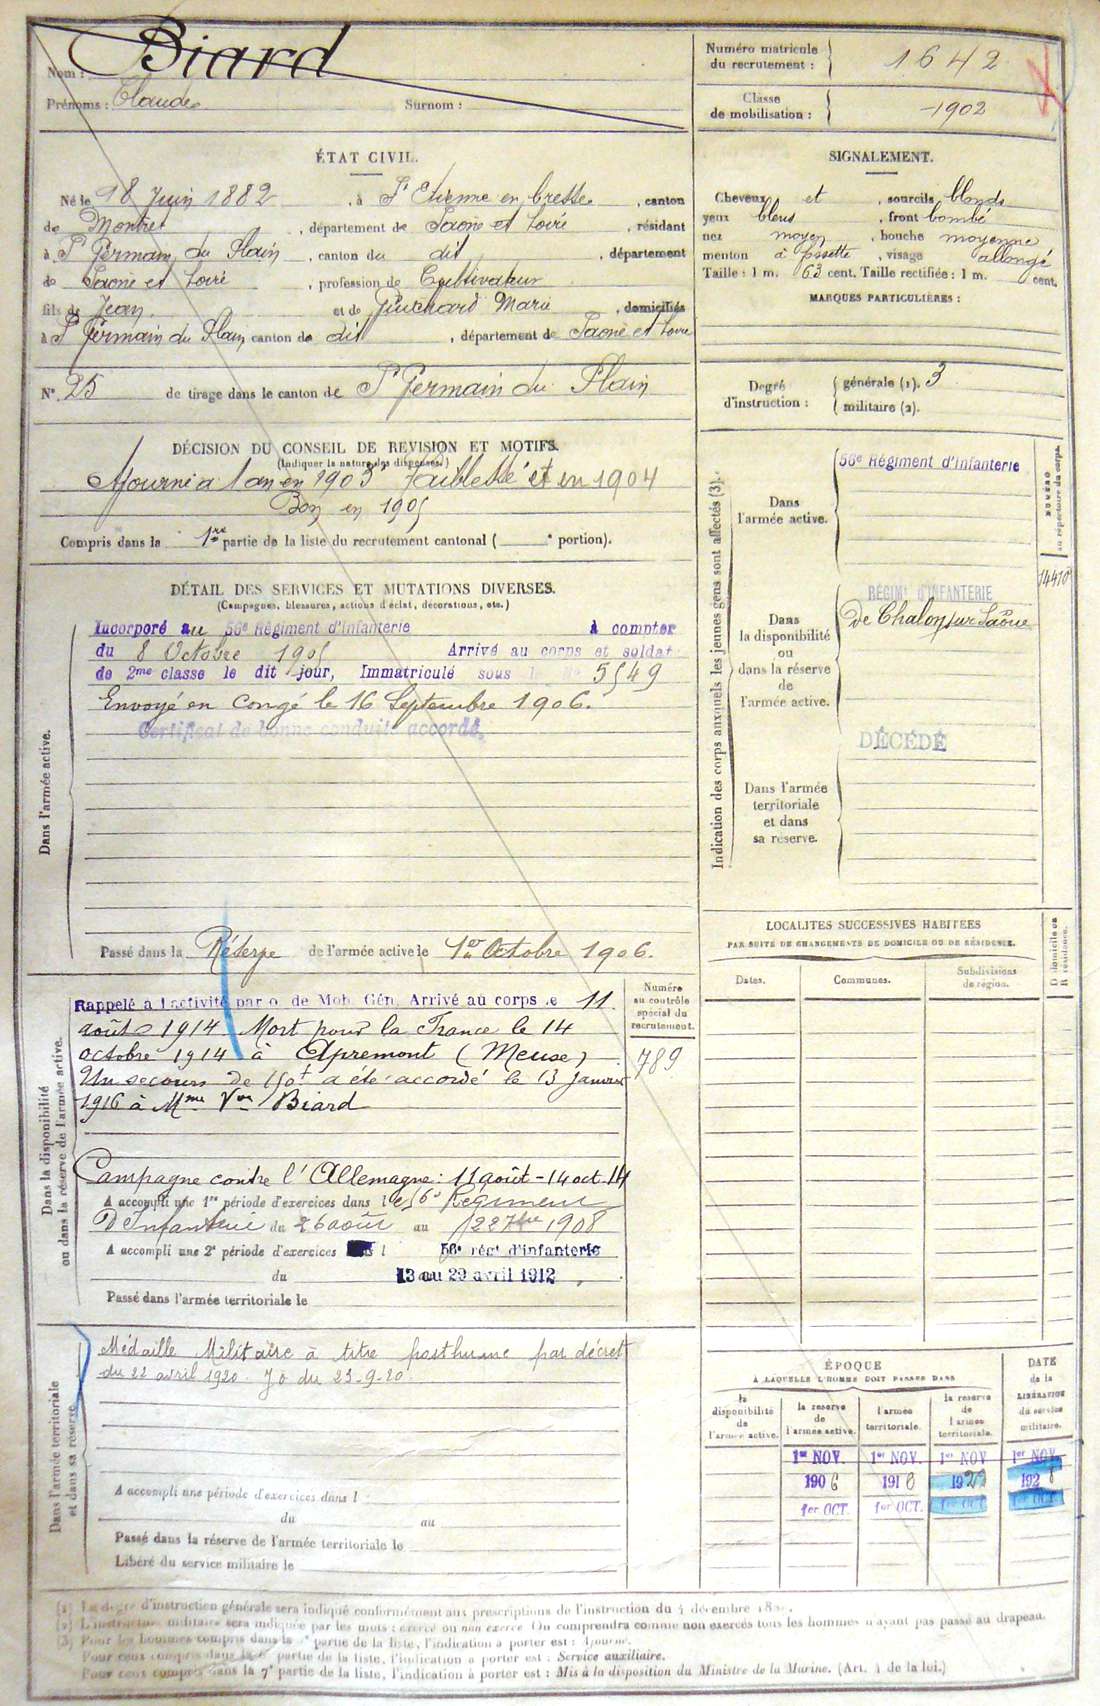 Nom : Biard
Prénoms : Claude
Surnom :
Numéro matricule du recrutement : 1642
Classe de mobilisation : 1902
ÉTAT CIVIL.
Né le 18 Juin 1882, à St Etienne en bresse, canton
de Montret, département de Saône et Loire, résidant
à St Germain du Plain, canton du dit, département
de Saône et Loire, profession de Cultivateur
fils de Jean et de Marie, domiciliés
à St Germain du Plain canton de dit, département de Saône et Loire
No. 25 de tirage dans le canton de St Germain du Plain
SIGNALEMENT.
Cheveux et, sourcils blonds
yeux bleus, front bombé
nez moyen, bouche moyenne
menton à fossette, visage allongé
Taille : 1 m. 63 cent. Taille rectifiée : 1 m. cent.
MARQUES PARTICULIÈRES :
Degré d'instruction :
générale (1). 3
militaire (2).
DÉCISION DU CONSEIL DE REVISION ET MOTIFS.
(Indiquer la nature des dispenses.)
Ajourné à 1 an en 1903 Faiblesse et en 1904
Bon en 1905
Compris dans la 1re partie de la liste du recrutement cantonal ( e portion).
DÉTAIL DES SERVICES ET MUTATIONS DIVERSES.
(Campagnes, blessures, actions d'éclat, décorations, etc.)
Dans l'armée active.
Incorporé au 56e Régiment d'Infanterie à compter
du 8 Octobre 1905 Arrivé au corps et soldat
de 2me classe le dit jour, Immatriculé sous le No 5549
Envoyé en congé le 16 Septembre 1906.
Certificat de bonne conduite accordé.
Passé dans la Réserve de l'armée active le 1er Octobre 1906.
Indication des corps auxquels les jeunes gens sont affectés (3).
Dans l'armée active.
56e Régiment d'Infanterie
NUMÉRO au répertoire du corps.
Dans la disponibilité ou dans la réserve de l'armée active.
RÉGIMt D'INFANTERIE
De Chalon sur Saône
DÉCÉDÉ
Dans l'armée territoriale et dans sa réserve.
LOCALITÉS SUCCESSIVES HABITÉES
PAR SUITE DE CHANGEMENTS DE DOMICILE OU DE RÉSIDENCE.
Dates.
Communes.
Subdivisions de région.
D domicile ou R résidence.
Dans la disponibilité ou dans la réserve de l'armée active.
Numéro au contrôle spécial du recrutement.
789
Rappelé à l'activité par o. de Mob. Gén. Arrivé au corps le 11
août 1914 Mort pour la France le 14
octobre 1914 à Apremont (Meuse)
Un secours de 150f a été accordé le 13 janvier
1916 à Mme Vve Biard
Campagne contre l'Allemagne : 11 août - 14 oct. 14
A accompli une 1re période d'exercices dans le 56e Régiment
D'Infanterie du 26 août au 22 7bre 1908
A accompli une 2e période d'exercices dans l 56e régt d'infanterie
du 13 au 29 avril 1912
Passé dans l'armée territoriale le
Dans l'armée territoriale et dans sa réserve
Médaille Militaire à titre posthume par décret
du 22 avril 1920. J.O du 23-9-20
A accompli une période d'exercices dans l
du au
Passé dans la réserve de l'armée territoriale le
Libéré du service militaire le
ÉPOQUE
À LAQUELLE L'HOMME DOIT PASSER DANS
la disponibilité de l'armée active.
la réserve de l'armée active.
l'armée territoriale.
la réserve de l'armée territoriale.
DATE de la LIBÉRATION du service militaire.
1er NOV. 1er NOV. 1er NOV 1er NOV.
1906 1918 1922 1928
1er OCT. 1er OCT. 1er OCT. 1er OCT.
(1) Le degré d'instruction générale sera indiqué conformément aux prescriptions de l'instruction du 4 décembre
(2) L'instruction militaire sera indiquée par les mots : exercé ou non exercé. On comprendra comme non exercés tous les hommes n'ayant pas passé au drapeau.
(3) Pour les hommes compris dans la partie de la liste, l'indication à porter est : Ajourné.
Pour ceux compris dans la 6e partie de la liste, l'indication à porter est : Service auxiliaire.
Pour ceux compris dans la 7e partie de la liste, l'indication à porter est : Mis à la disposition du Ministre de la Marine. (Art. 4 de la loi.)